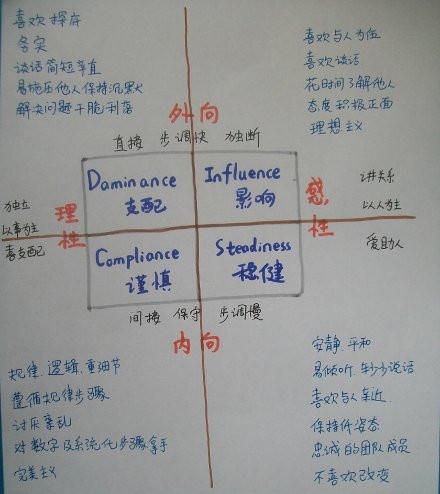 喜欢探库
务实
谈话简短率直
易施压他人保持沉默
解决问题干脆利落
喜欢与人为伍
喜欢谈话
花时间了解他人
态度积极正面
理想主义
外向
直接 步调快 独断
Dominance
支配
Influence
影响
理性
感性
独立
以事为主
喜支配
讲关系
以人为主
爱助人
Compliance
谨慎
Steadiness
稳健
间接 保守 步调慢
内向
规律、逻辑、重细节
遵循规律步骤
讨厌紊乱
对数字及系统化步骤拿手
完美主义
安静、平和
易倾听、较少说话
喜欢与人亲近
保持低姿态
忠诚的团队成员
不喜欢改变